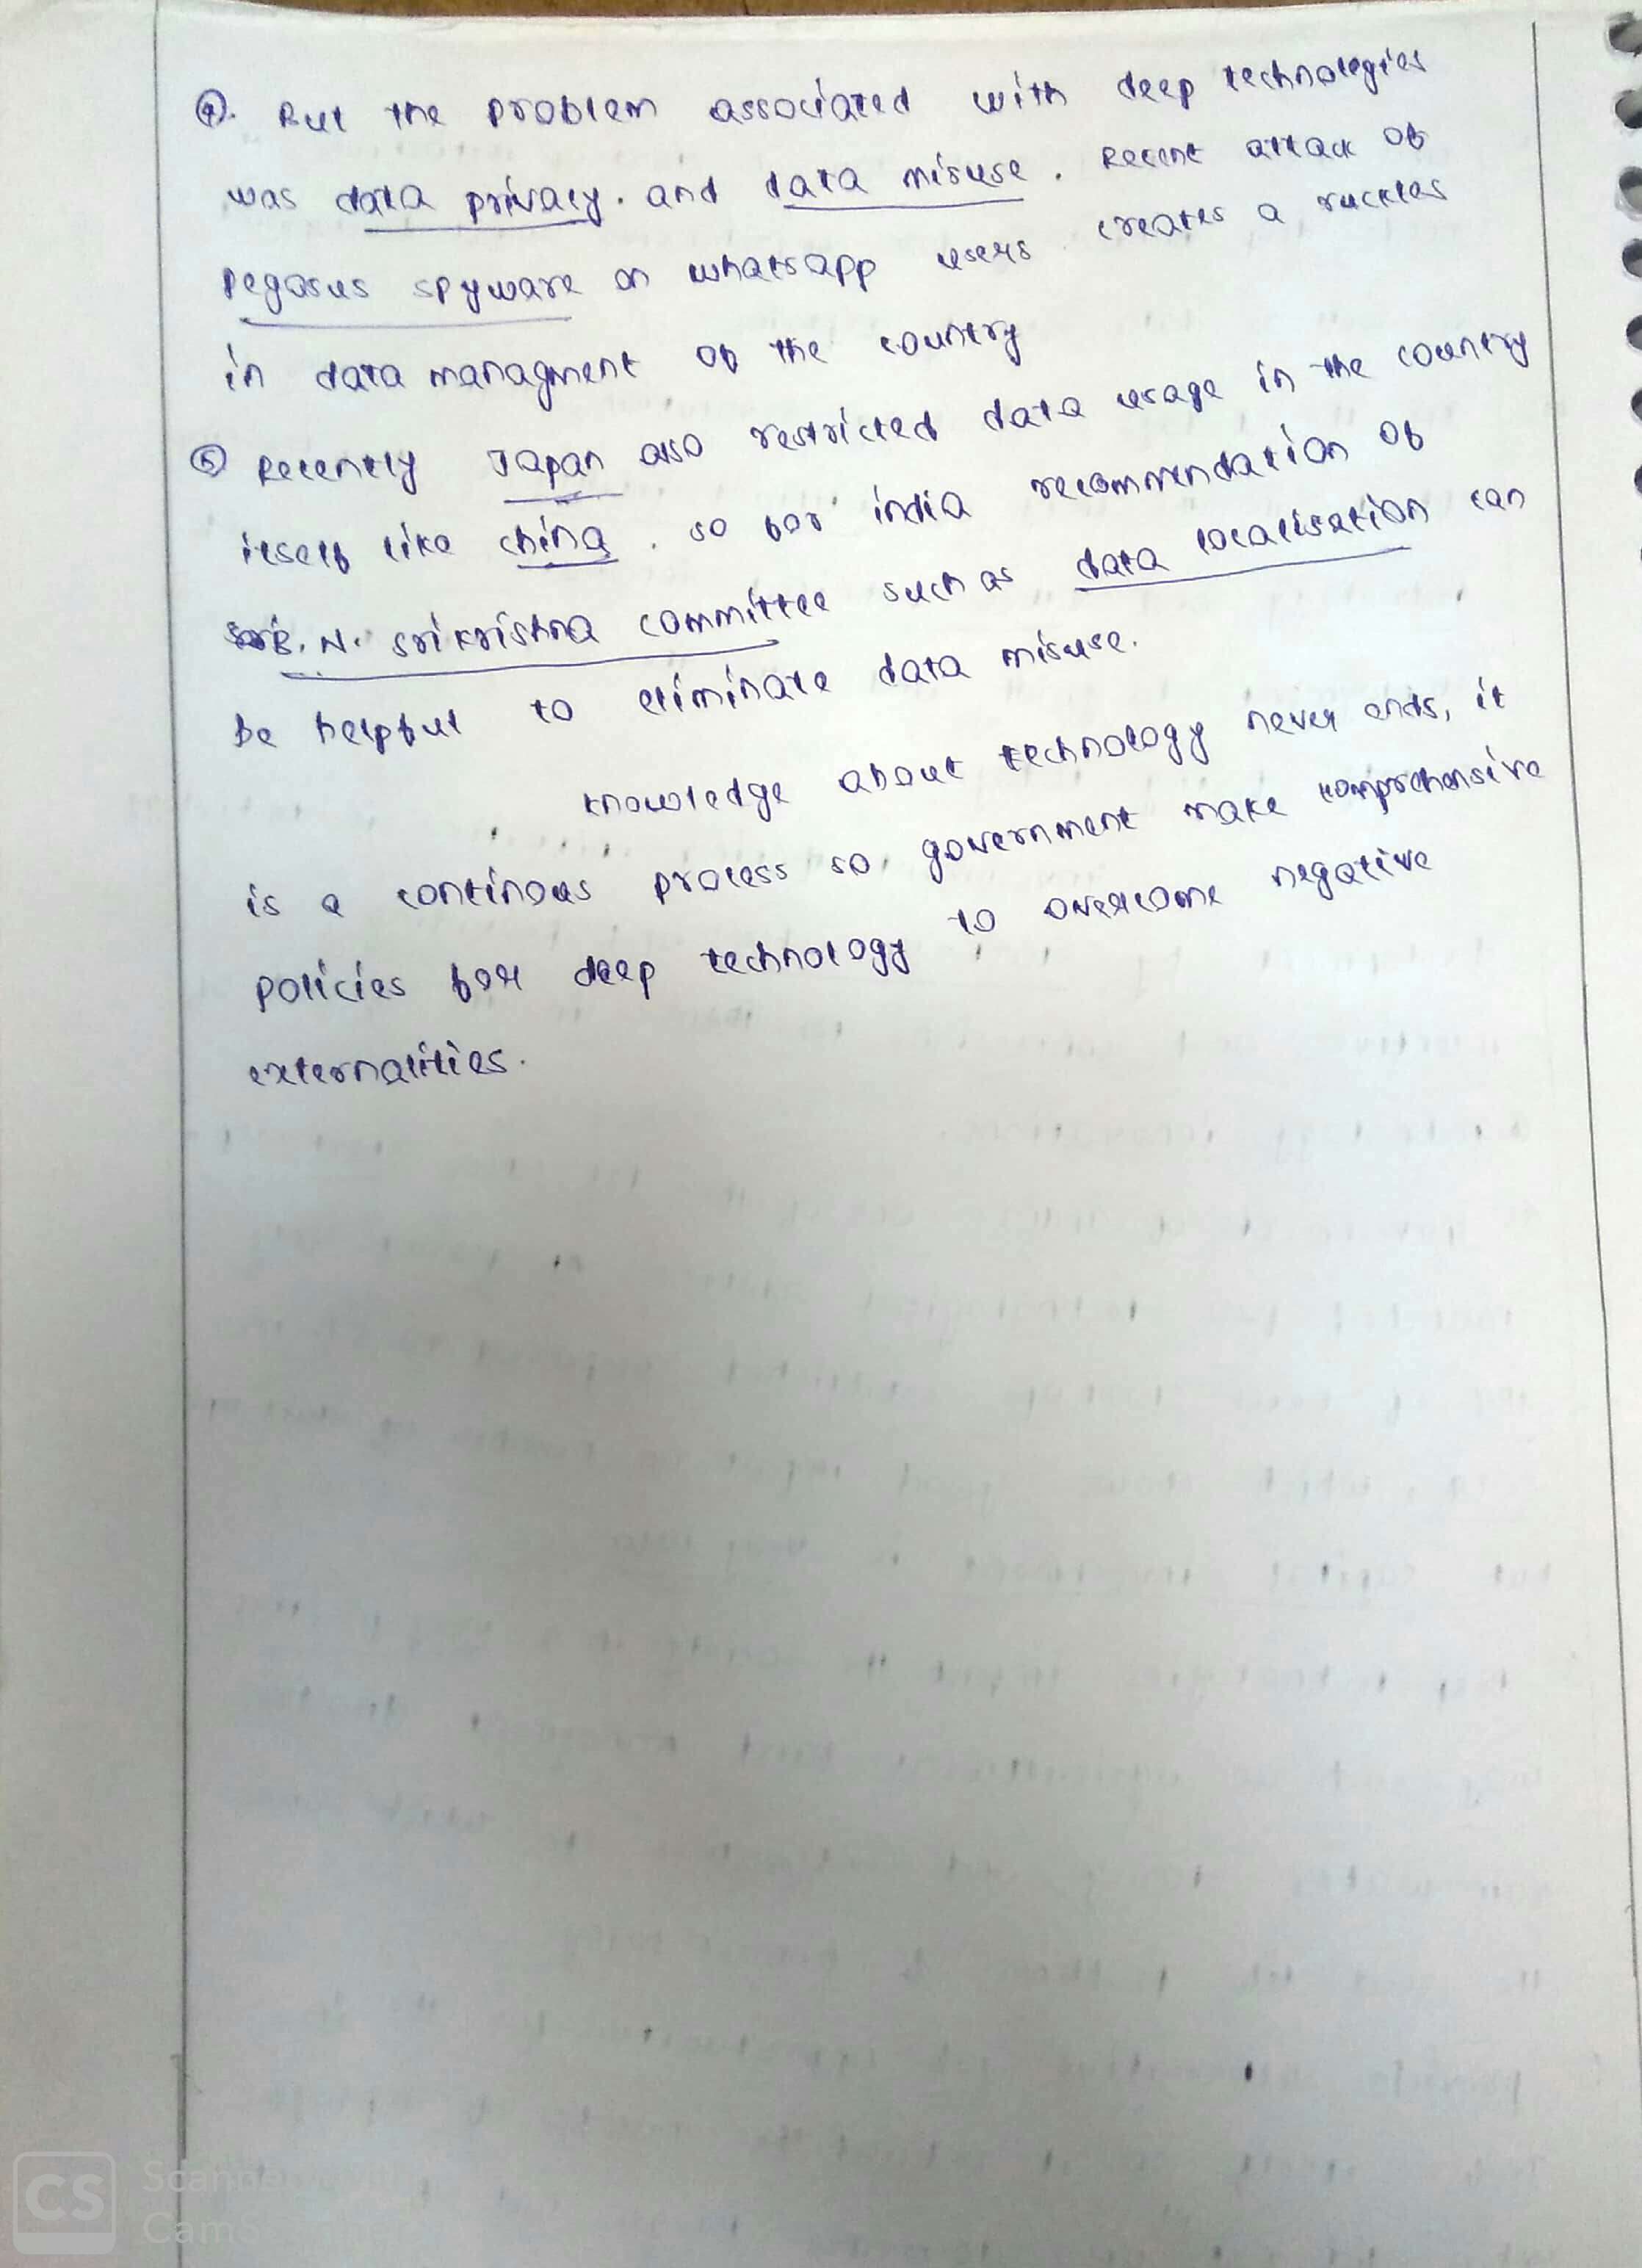 ④. But the problem associated with deep technologies
was data privacy. and data misuse. Recent attack of
pegasus spyware on whatsapp users creates a ruckles
in data managment of the country
⑤ Recently Japan also restricted data usage in the country
itself like china. so for india recommendation of
B. N. srikrishna committee such as data localisation can
be helpful to eliminate data misuse.
knowledge about technology never ends, it
is a continous process so, government make comprehensive
policies for deep technology to overcome negative
externalities.
CS
Scanned with
CamScanner